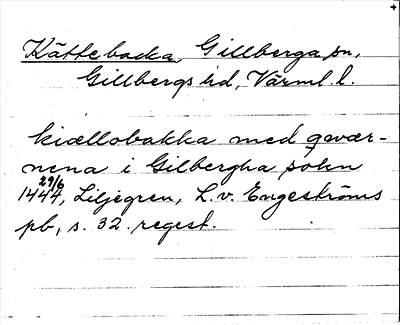 Kättebacka, Gillberga sn,
Gillbergs hd, Värml. l.
kiællobakka med qwær-
nena i Gilbergha sokn
29/6 1444, Liljegren, L. v. Engeströms
pb, s. 32. regest.